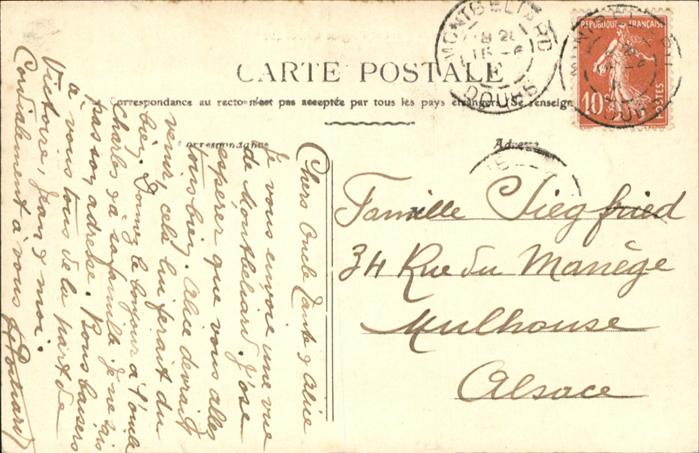 CARTE POSTALE
Correspondance au recto n'est pas acceptée par tous les pays étrangers. Se renseign
Correspondance
Adresse
MONTBELIARD
DOUBS
REPUBLIQUE FRANÇAISE
10
POSTES
Chers Oncle Tante & Alice
Je vous envoie une vue
de Montbéliard. J'ose
espérer que vous allez
tous bien. Alice devrait
venir cela lui ferait du
bien. Donnez le bonjour à l'oncle
Charles & sa famille je ne sais
pas son adresse. Bons baisers
à vous tous de la part de
Victoire, Jean & moi.
Cordialement à vous
Famille Siegfried
34 Rue du Manège
Mulhouse
Alsace